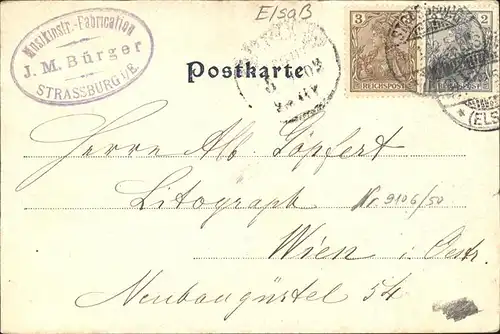 Elsaß
Musikinstr.-Fabrication
J. M. Bürger
STRASSBURG i/E
Postkarte
3
REICHSPOST
2
REICHSPOST
(ELS
Herrn Alb. Göpfert
Litograph
Nr 9106/50
Wien i. Oestr.
Neubaugürtel 54